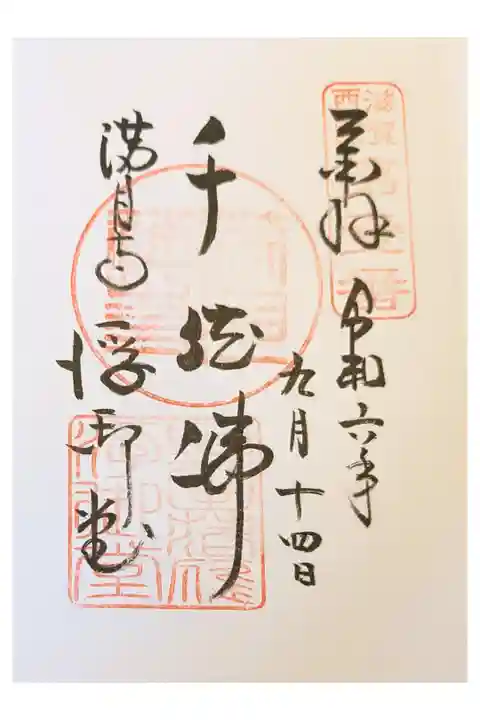 奉拝 令和六年
九月十四日
千体佛
満月寺 浮御堂